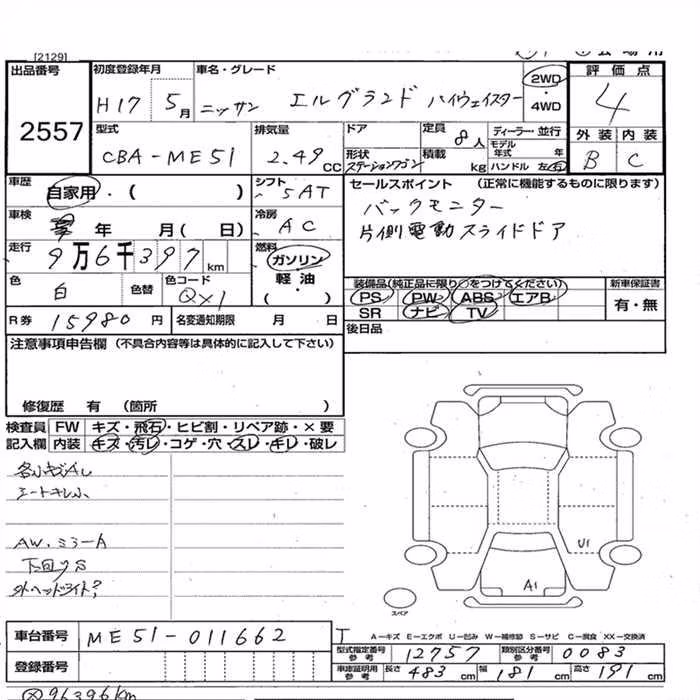 [2129]
出品番号 2557
初度登録年月 H17 5月
車名・グレード ニッサン エルグランド ハイウェイスター
2WD ・ 4WD
評価点 4
外装 内装
B C
型式 CBA-ME51
排気量 2.49 CC
ドア
形状 ステーションワゴン
定員 8人
積載 kg
ディーラー・並行
モデル年式 年
ハンドル 左・右
車歴 自家用・( )
シフト 5AT
セールスポイント (正常に機能するものに限ります)
バックモニター
片側電動スライドドア
車検 年 月( 日)
冷房 AC
走行 9万6千397km
燃料 ガソリン
軽・油
・( )
色 白
色替
色コード QX1
装備品(純正品に限り○をつけてください) 新車保証書
PS PW ABS エアB 有・無
SR ナビ TV
R券 15980円 名変通知期限 月 日
後日品
注意事項申告欄 (不具合内容等は具体的に記入して下さい)
修復歴 有 (箇所 )
検査員 FW キズ・飛石・ヒビ割・リペア跡・×要
記入欄 内装 キズ・汚レ・コゲ・穴・スレ・キレ・破レ
シートキレ小
AW・ミラーA
外ヘッドライト?
U1
A1
スペア
車台番号 ME51-011662
A−キズ E−エクボ U−凹み W−補修跡 S−サビ C−腐食 XX−交換済
型式指定番号 参考 12757 類別区分番号 参考 0083
登録番号
車庫証明用 参考 長さ 483cm 幅 181cm 高さ 191cm
96396km